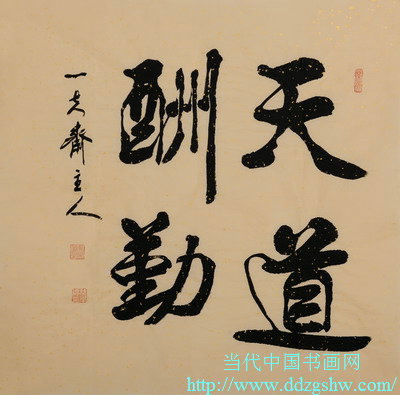 天道
酬勤
一夫齋主人
当代中国书画网
http://www.ddzgshw.com/